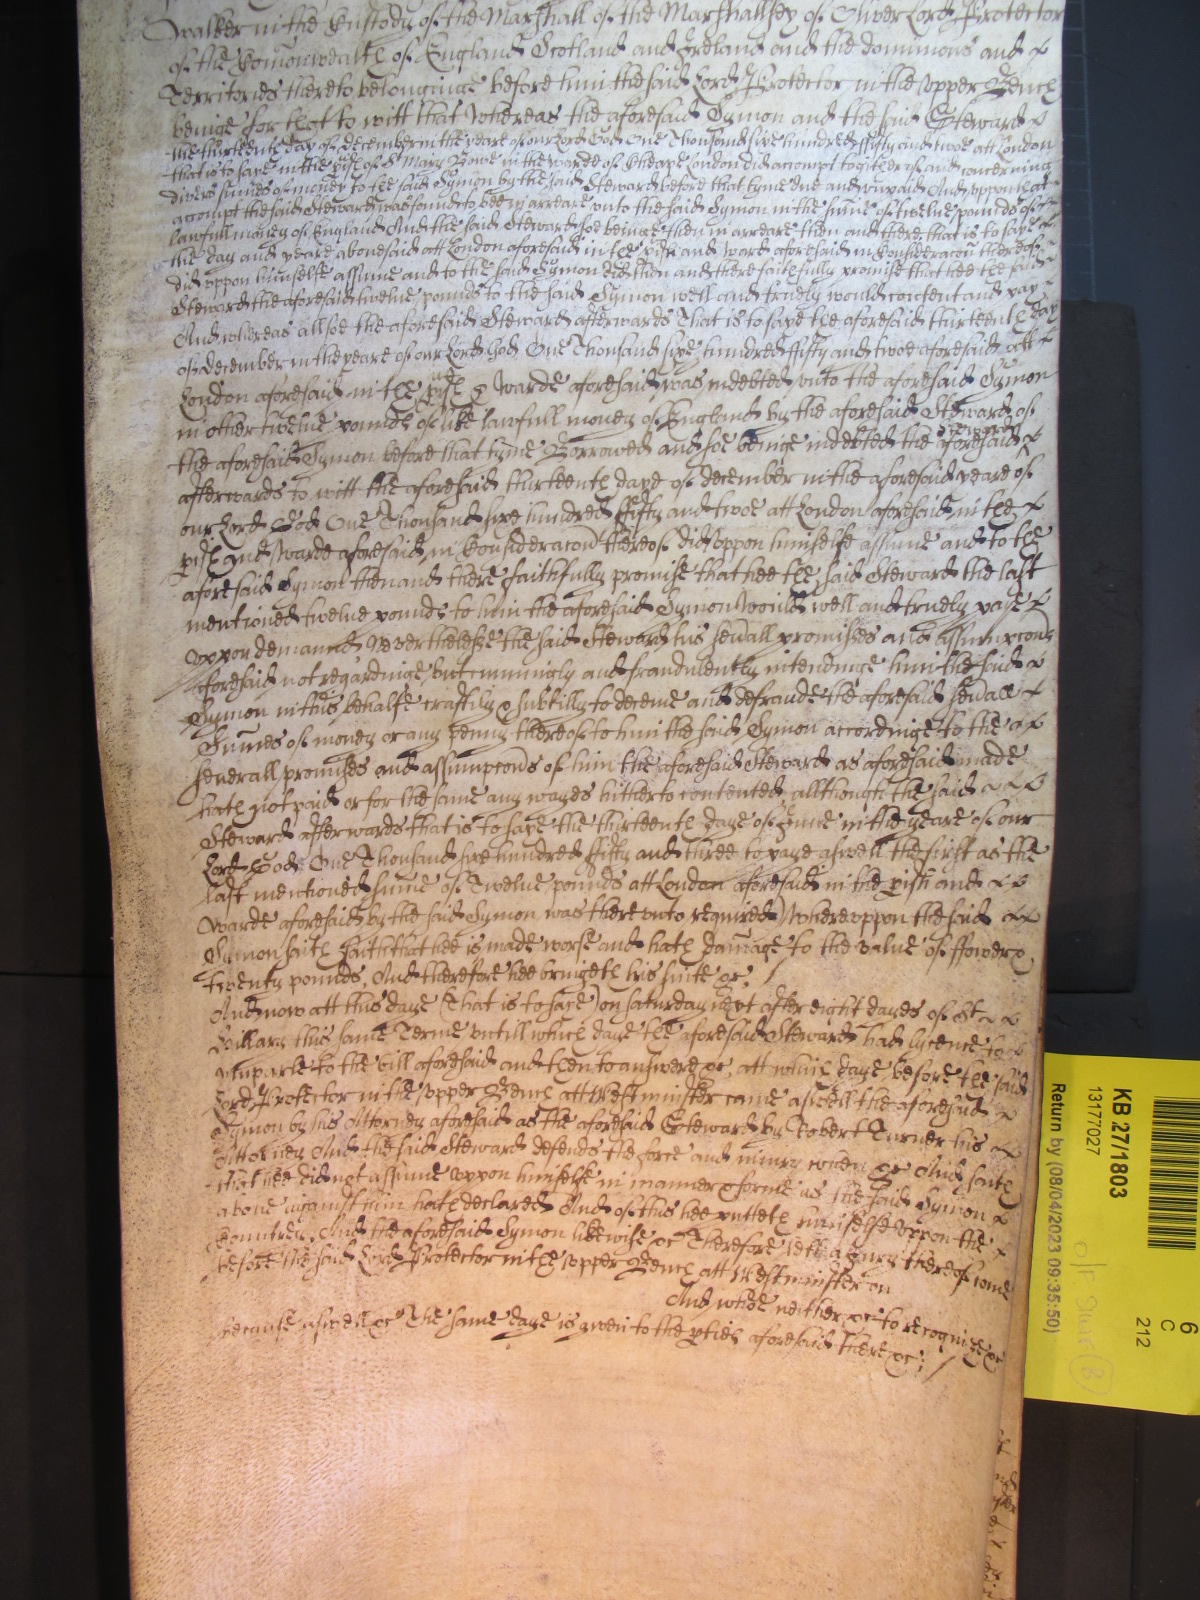 Walker in the Custody of the Marshall of the Marshallsey of Oliver Lord Protector
of the Comonwealth of England Scotland and Ireland and the dominions and
Territories thereto belonginge before him the said Lord Protector in the Upper Bench
beinge for that to witt that Whereas the aforesaid Symon and the said Steward
the thirteenth day of December in the yeare of our Lord God One Thousand sixe hundred ffifty and twoe att London
that is to saye in the pish of St Mary Bowe in the warde of Cheape London did accompt togither of and concerning
divers sumes of money to the said Symon by the said Steward before that tyme due and unpaid And uppon that
accompt the said Steward was found to bee in arreare unto the said Symon in the sume of twelve pounds of
lawfull money of England And the said Steward soe beinge then in arreare then and there that is to saye
the day and yeare abovesaid att London aforesaid in the pish and Ward aforesaid in Consideracon thereof
did uppon himselfe assume and to the said Symon did then and there faithfully promise that hee the said
Steward the aforesaid twelve pounds to the said Symon well and truely would content and pay
And whereas allsoe the aforesaid Steward afterwards That is to saye the aforesaid thirteenth day
of December in the yeare of our Lord God One Thousand sixe hundred ffifty and twoe aforesaid att
London aforesaid in the pish & Warde aforesaid was indebted unto the aforesaid Symon
in other twelve pounds of like lawfull money of England by the aforesaid Steward of
the aforesaid Symon before that tyme Borrowed and soe beinge indebted the aforesaid Steward
afterwards to witt the aforesaid thirteenth daye of December in the aforesaid yeare of
our Lord God One Thousand sixe hundred ffifty and twoe att London aforesaid in the
pish and Warde aforesaid in Consideracon thereof did uppon himselfe assume and to the
aforesaid Symon then and there faithfully promise that hee the said Steward the last
mentioned twelve pounds to him the aforesaid Symon Would well and truely paye
uppon demannd Neverthelesse the said Steward his sevall promises and assumpcons
aforesaid not regardinge but cunningly and fraudulently intendinge him the said
Symon in this behalfe craftily & subtilly to deceive and defraude the aforesaid sevall
Sumes of money or any penny thereof to him the said Symon accordinge to the
severall promises and assumpcons of him the aforesaid Steward as aforesaid made
hath not paid or for the same any wayes hitherto contented allthough the said
Steward afterwards that is to saye the thirteenth daye of June in the yeare of our
Lord God One Thousand sixe hundred ffifty and three to paye aswell the first as the
last mentioned sume of Twelve pounds att London aforesaid in the pish and
Warde aforesaid by the said Symon was there unto required Whereuppon the said
Symon saith that hee is made worse and hath damage to the value of ffower
twenty pounds And therefore hee bringeth his suite &c
And now att this daye (That is to saye) on Saturday next after eight dayes of St
Hillary this same Terme untill which daye the aforesaid Steward had lycence to
imparle to the bill aforesaid and then to answere &c att which daye before the said
Lord Protector in the upper Bench att Westminster came aswell the aforesaid
Symon by his Attorney aforesaid as the aforesaid Steward by Robert Turner his
Attorney And the said Steward defends the force and iniury when &c And saith
that hee did not assume uppon himselfe in manner & forme as the said Symon
above against him hath declared And of this hee putteth himselfe uppon the
Countrey And the aforesaid Symon likewise &c Therefore lett a Jury thereof come
before the said Lord Protector in the upper Bench att Westminster on
And whoe neither &c to recognize &c
because aswell &c The same daye is given to the pties aforesaid there &c
KB 27/1803
13177027
Return by (08/04/2023 09:35:50)
6
C
212